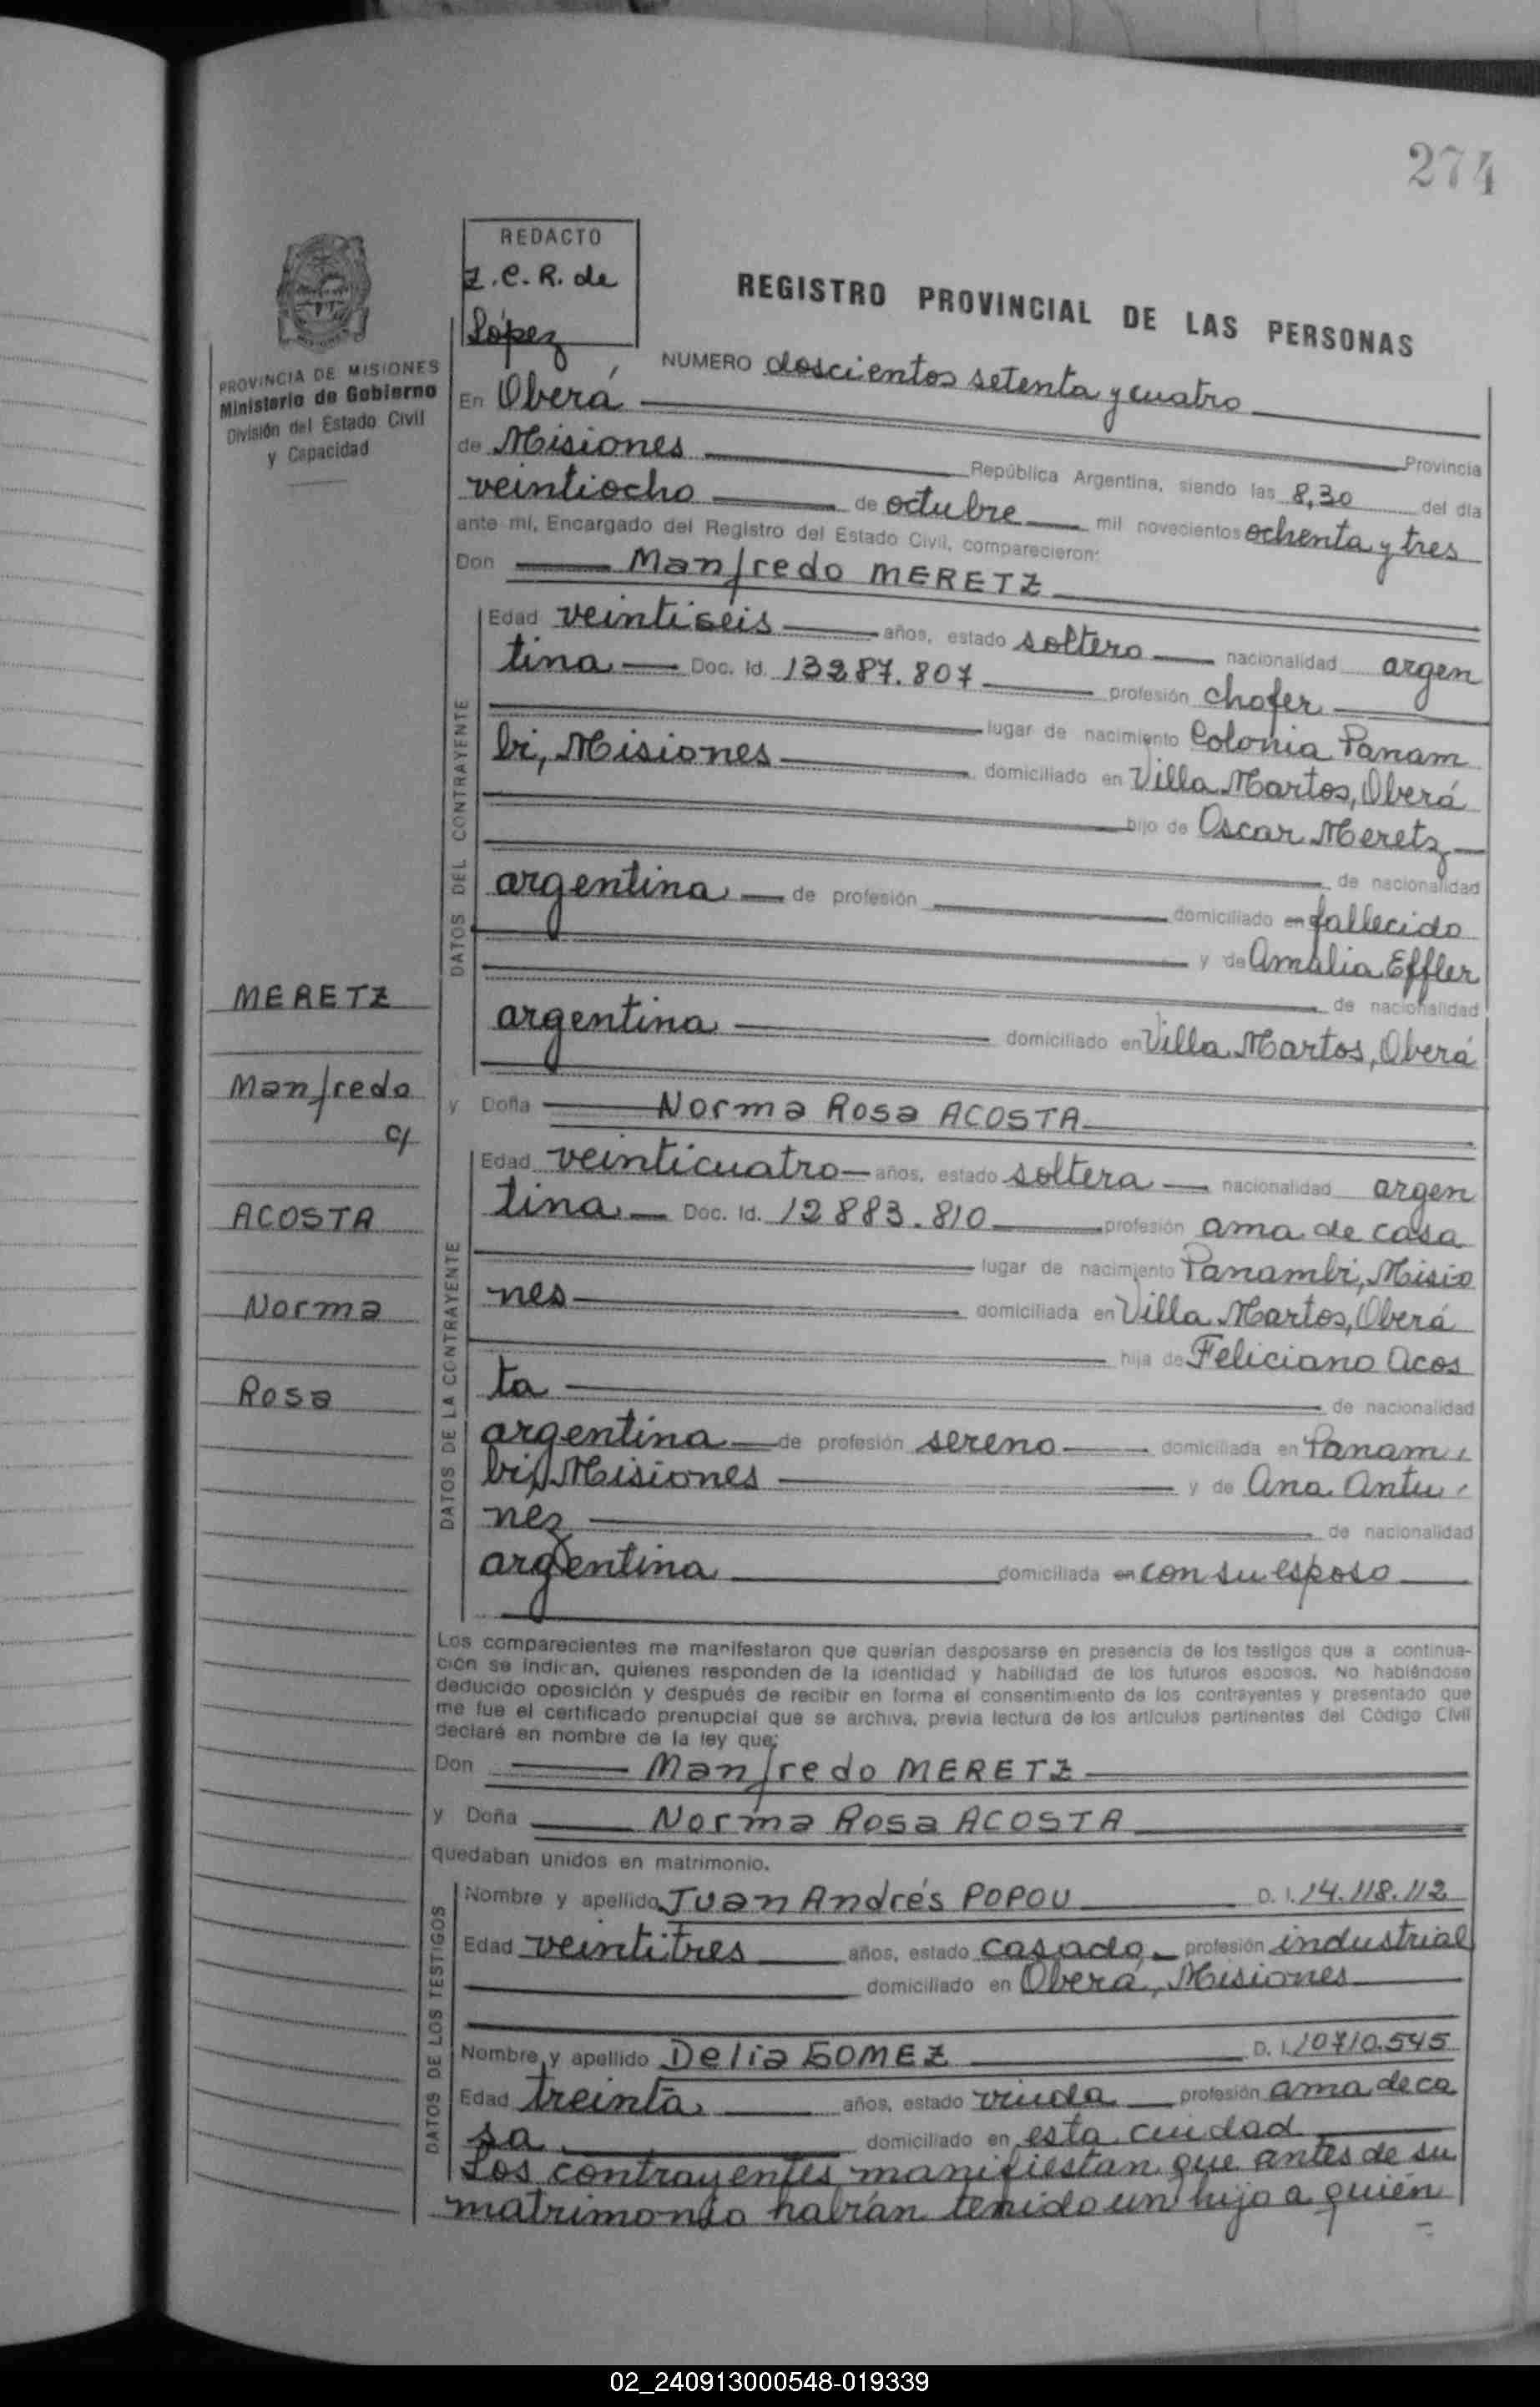 274
REDACTO
Z.C.R. de
López
REGISTRO PROVINCIAL DE LAS PERSONAS
PROVINCIA DE MISIONES
Ministerio de Gobierno
División del Estado Civil
y Capacidad
NUMERO doscientos setenta y cuatro
En Oberá Provincia
de Misiones República Argentina, siendo las 8,30 del día
veintiocho de octubre mil novecientos ochenta y tres
ante mí, Encargado del Registro del Estado Civil, comparecieron:
Don Manfredo MERETZ
DATOS DEL CONTRAYENTE
Edad veintiseis años, estado soltero nacionalidad argen
tina Doc. Id. 13287.807 profesión chofer
lugar de nacimiento Colonia Panam
bi, Misiones domiciliado en Villa Martos, Oberá
hijo de Oscar Meretz
de nacionalidad
argentina de profesión domiciliado en fallecido
y de Amalia Effler
de nacionalidad
argentina domiciliado en Villa Martos, Oberá
MERETZ
Manfredo
c/
ACOSTA
Norma
Rosa
y Doña Norma Rosa ACOSTA
DATOS DE LA CONTRAYENTE
Edad veinticuatro años, estado soltera nacionalidad argen
tina Doc. Id. 12883.810 profesión ama de casa
lugar de nacimiento Panambi, Misio
nes domiciliada en Villa Martos, Oberá
hija de Feliciano Acos
ta de nacionalidad
argentina de profesión sereno domiciliada en Panam
bi, Misiones y de Ana Antu
nez de nacionalidad
argentina domiciliada en con su esposo
Los comparecientes me manifestaron que querían desposarse en presencia de los testigos que a continua-
ción se indican, quienes responden de la identidad y habilidad de los futuros esposos. No habiéndose
deducido oposición y después de recibir en forma el consentimiento de los contrayentes y presentado que
me fue el certificado prenupcial que se archiva, previa lectura de los artículos pertinentes del Código Civil
declaré en nombre de la ley que:
Don Manfredo MERETZ
y Doña Norma Rosa ACOSTA
quedaban unidos en matrimonio.
DATOS DE LOS TESTIGOS
Nombre y apellido Juan Andrés POPOU D. I. 14.118.112
Edad veintitres años, estado casado profesión industrial
domiciliado en Oberá, Misiones
Nombre y apellido Delia GOMEZ D. I. 10710.545
Edad treinta años, estado viuda profesión ama de ca
sa domiciliado en esta ciudad
Los contrayentes manifiestan que antes de su
matrimonio habían tenido un hijo a quién
02_240913000548-019339